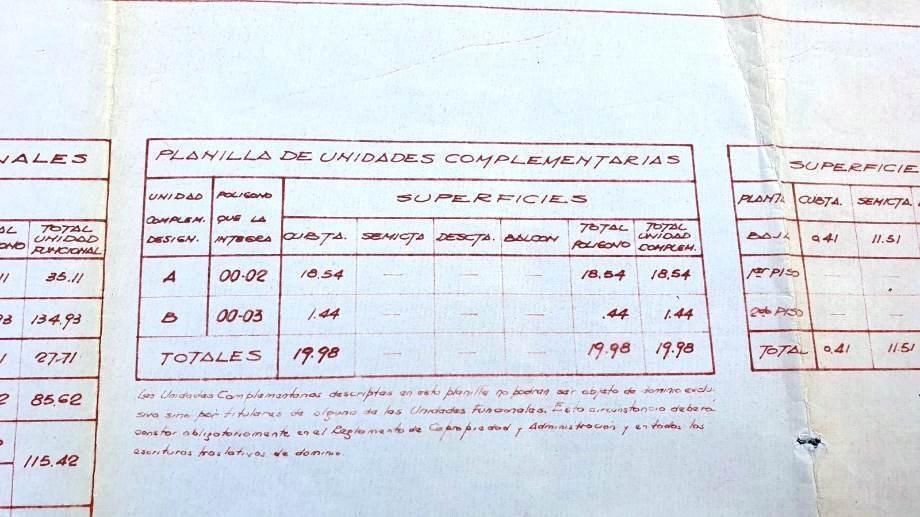 PLANILLA DE UNIDADES COMPLEMENTARIAS
UNIDAD COMPLEM. DESIGN. POLIGONO QUE LA INTEGRA SUPERFICIES
CUBTA. SEMICTA DESCTA. BALCON TOTAL POLIGONO TOTAL UNIDAD COMPLEM.
A 00-02 18.54 — — — 18.54 18.54
B 00-03 1.44 — — — .44 1.44
TOTALES 19.98 — — — 19.98 19.98
Las Unidades Complementarias descriptas en esta planilla no podran ser objeto de dominio exclu-
sivo sino por titulares de alguna de las Unidades Funcionales. Esta circunstancia debera
constar obligatoriamente en el Reglamento de Copropiedad y Administración y en todas las
escrituras traslativas de dominio.
NALES
TOTAL UNIDAD FUNCIONAL
35.11
134.93
27.71
85.62
115.42
SUPERFICIE
PLANTA CUBTA. SEMICTA.
BAJA 0.41 11.51
1er PISO — —
2do PISO — —
TOTAL 0.41 11.51